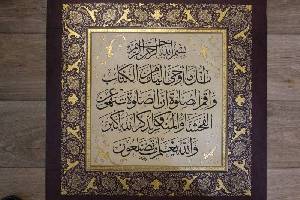 بسم الله الرحمن الرحيم
اتل ما اوحي اليك من الكتاب
واقم الصلوة ان الصلوة تنهى عن
الفحشاء والمنكر ولذكر الله اكبر
والله يعلم ما تصنعون